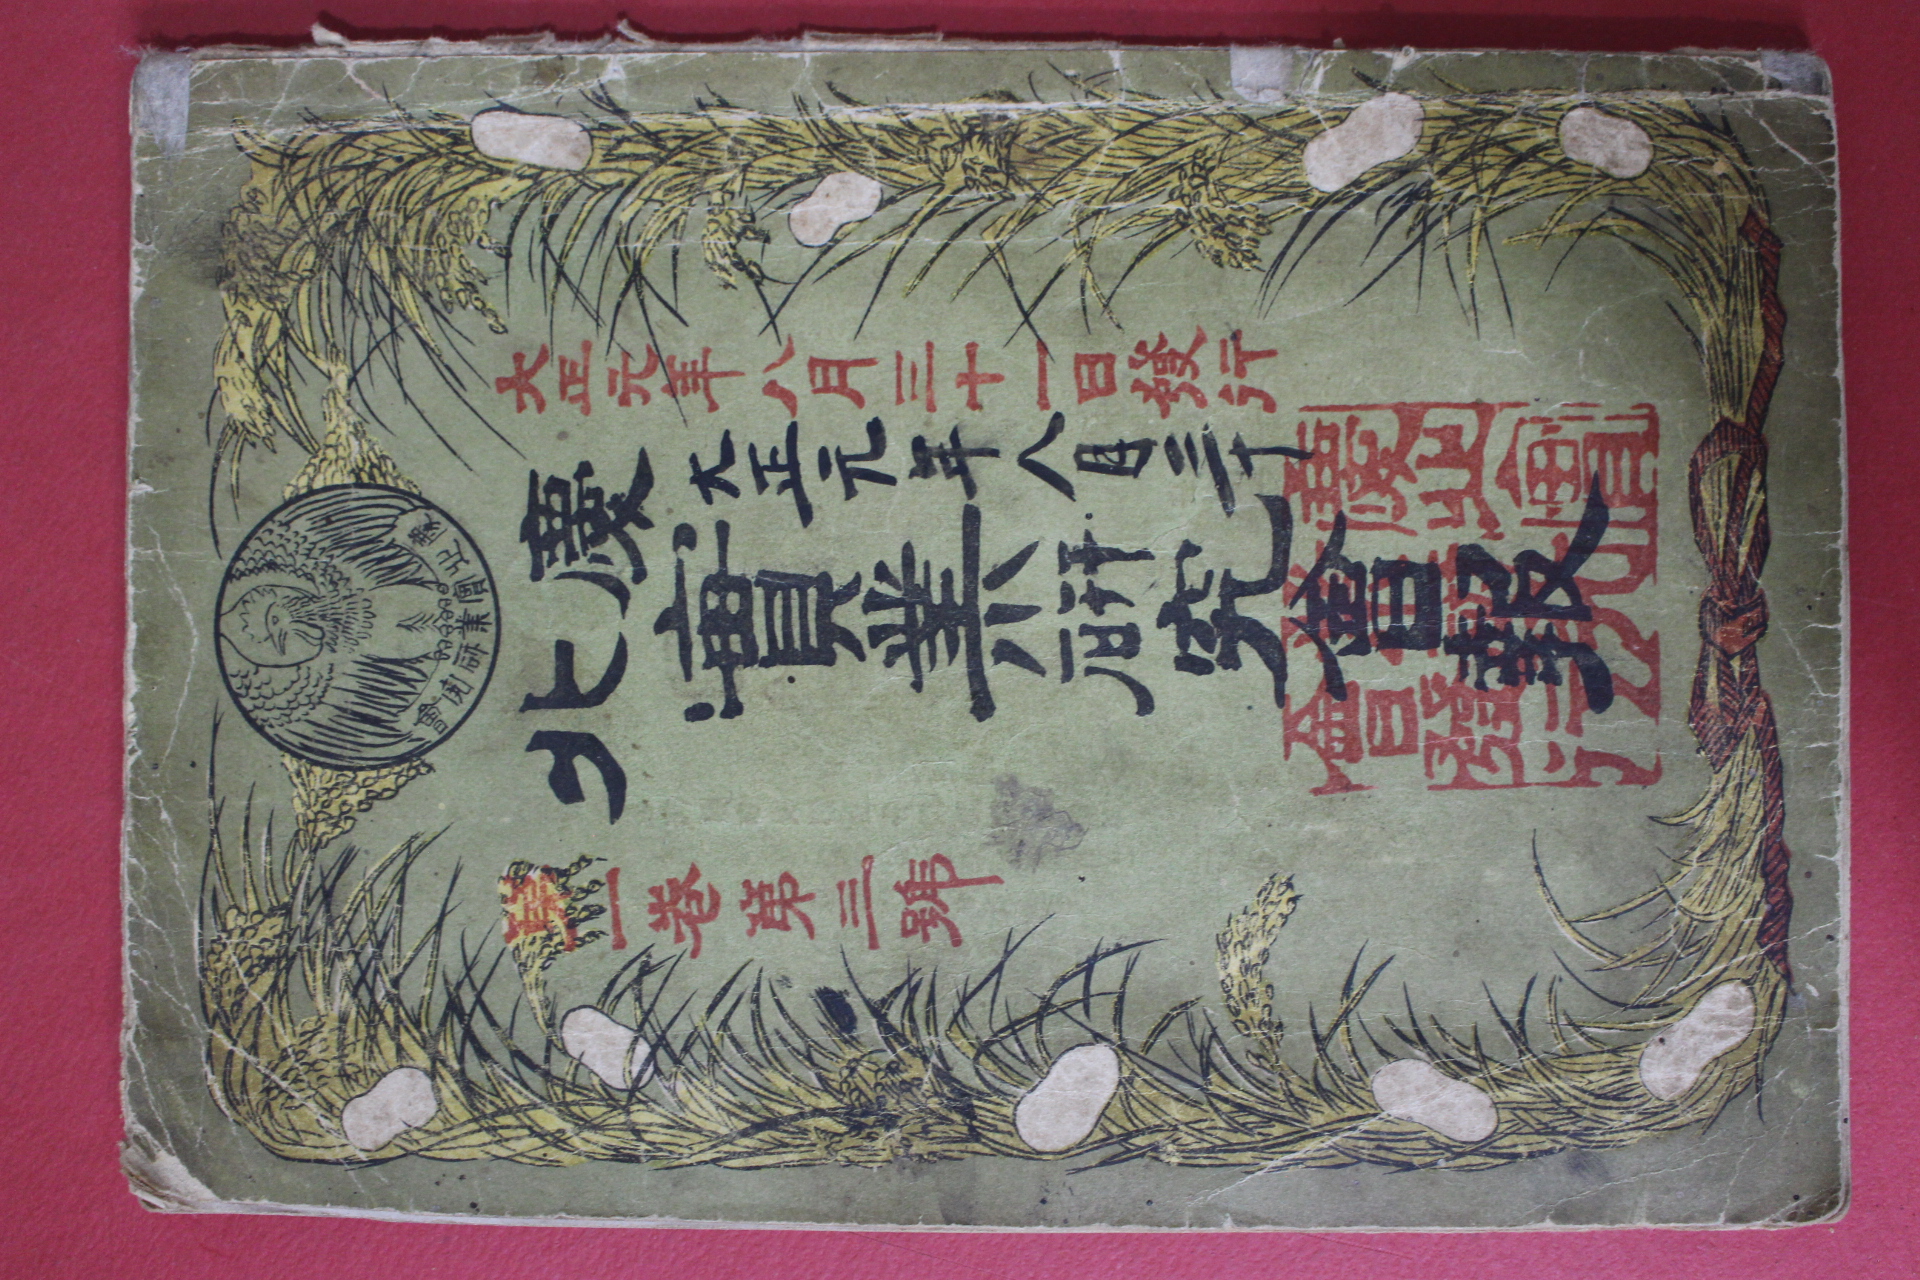 慶北實業研究會
大正元年八月三十一日發行
大正元年八月三十
慶北
實業研究會報
第一巻第三號
慶北實
業研究
會發行